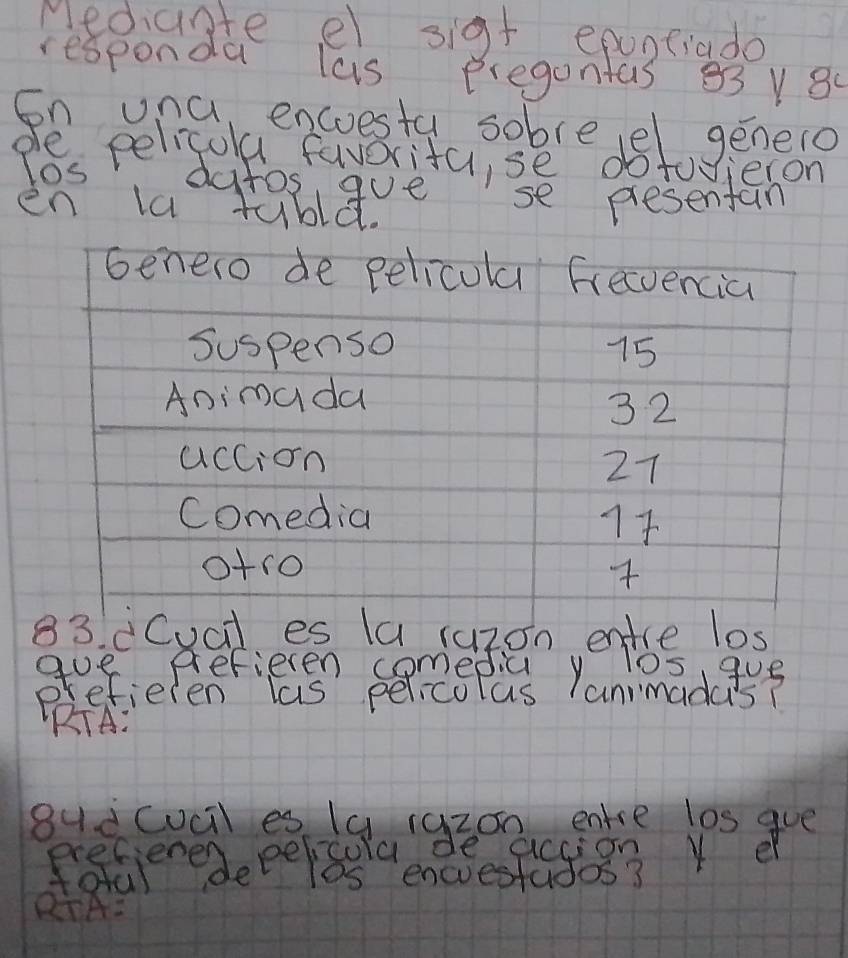 Mediante el sigt epunciado
responda las pregontas 83 y 84
En una encuesta sobre el género
de pelicula favorita, se obtuvieron
los datos que se presentan
en la tabla.
Genero de pelicula Frecuencia
Suspenso 15
Animada 32
accion 21
Comedia 17
otro 7
83. ¿Cuál es la razon entre los
que prefieren comedia y los que
prefieren las peliculas animadas?
RTA:
84. ¿Cuál es la razon entre los que
prefieren pelicula de accion y el
total de los encuestados?
RTA: